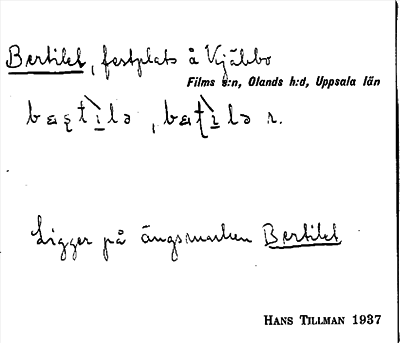 Bertilet, festplats å Vjäbbo
Films s:n, Olands h:d, Uppsala län
Ligger på ängsmarken Bertilet
HANS TILLMAN 1937